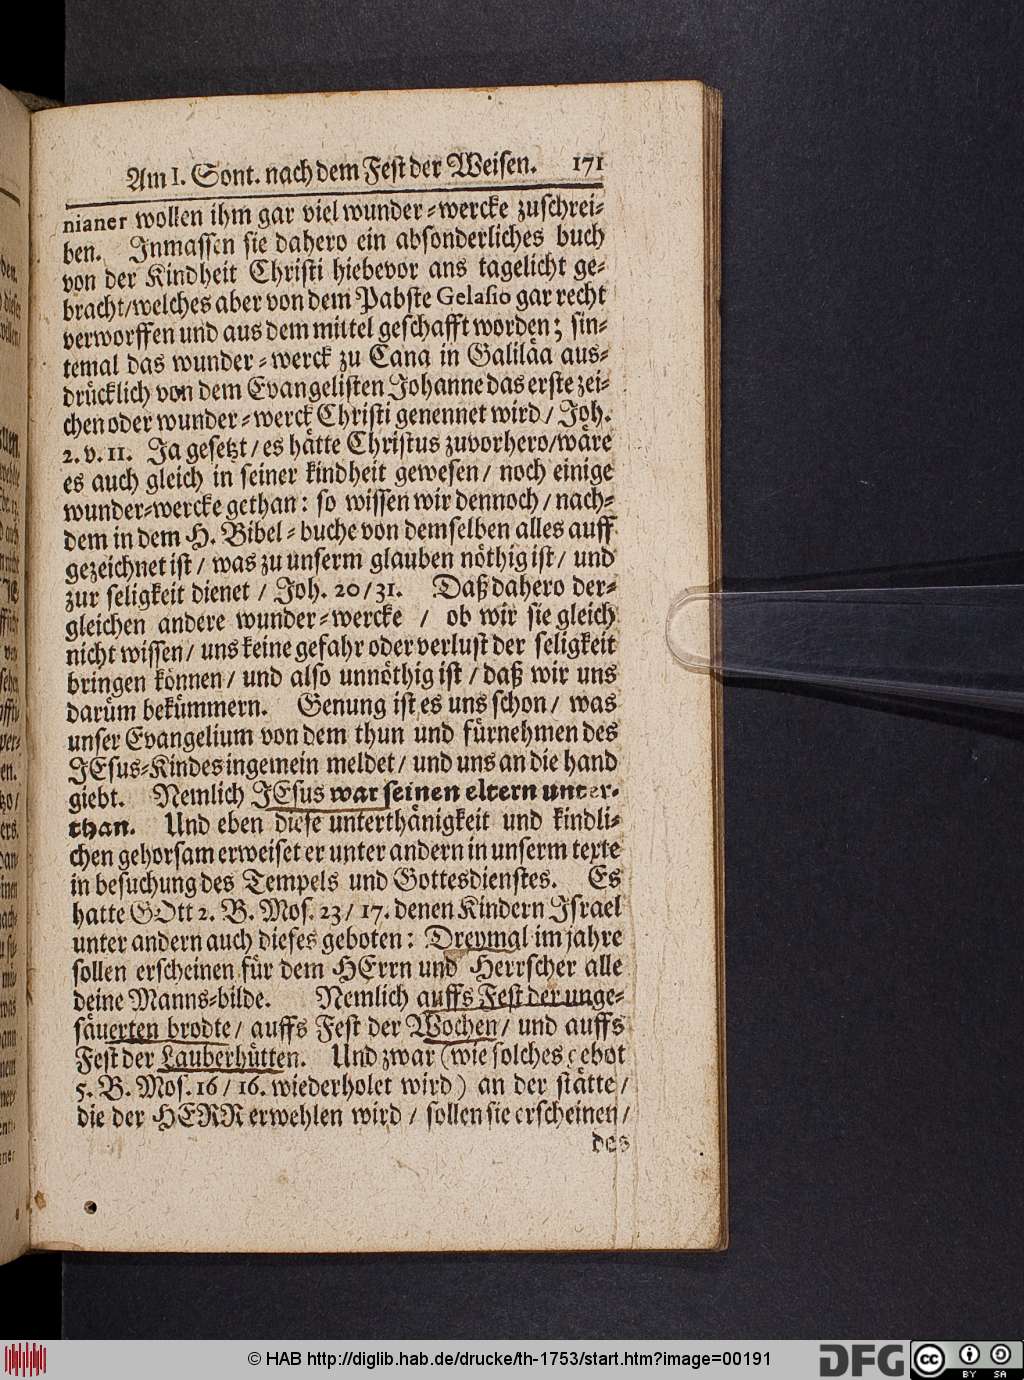 Am I. Sont. nach dem Fest der Weisen. 171
nianer wollen ihm gar viel wunder-wercke zuschrei-
ben. Inmassen sie dahero ein absonderliches buch
von der Kindheit Christi hiebevor ans tagelicht ge-
bracht/welches aber von dem Pabste Gelasio gar recht
verworffen und aus dem mittel geschafft worden; sin-
temal das wunder-werck zu Cana in Galiläa aus-
drücklich von dem Evangelisten Johanne das erste zei-
chen oder wunder-werck Christi genennet wird/ Joh.
2. v. 11. Ja gesetzt/ es hätte Christus zuvorhero/wäre
es auch gleich in seiner kindheit gewesen/ noch einige
wunder-wercke gethan: so wissen wir dennoch/ nach-
dem in dem H. Bibel-buche von demselben alles auff
gezeichnet ist/ was zu unserm glauben nöthig ist/ und
zur seligkeit dienet/ Joh. 20/31. Daß dahero der-
gleichen andere wunder-wercke / ob wir sie gleich
nicht wissen/ uns keine gefahr oder verlust der seligkeit
bringen können/ und also unnöthig ist/ daß wir uns
darüm bekümmern. Genung ist es uns schon/ was
unser Evangelium von dem thun und fürnehmen des
JEsus-Kindes ingemein meldet/ und uns an die hand
giebt. Nemlich JEsus war seinen eltern unter-
than. Und eben diese unterthänigkeit und kindli-
chen gehorsam erweiset er unter andern in unserm texte
in besuchung des Tempels und Gottesdienstes. Es
hatte GOtt 2. B. Mos. 23/ 17. denen Kindern Israel
unter andern auch dieses geboten: Dreymal im jahre
sollen erscheinen für dem HErrn und Herrscher alle
deine Manns-bilde. Nemlich auffs Fest der unge-
säuerten brodte/ auffs Fest der Wochen/ und auffs
Fest der Lauberhütten. Und zwar (wie solches gebot
5. B. Mos. 16/ 16. wiederholet wird) an der stätte/
die der HERR erwehlen wird/ sollen sie erscheinen/
des
© HAB http://diglib.hab.de/drucke/th-1753/start.htm?image=00191
DFG
cc
BY SA